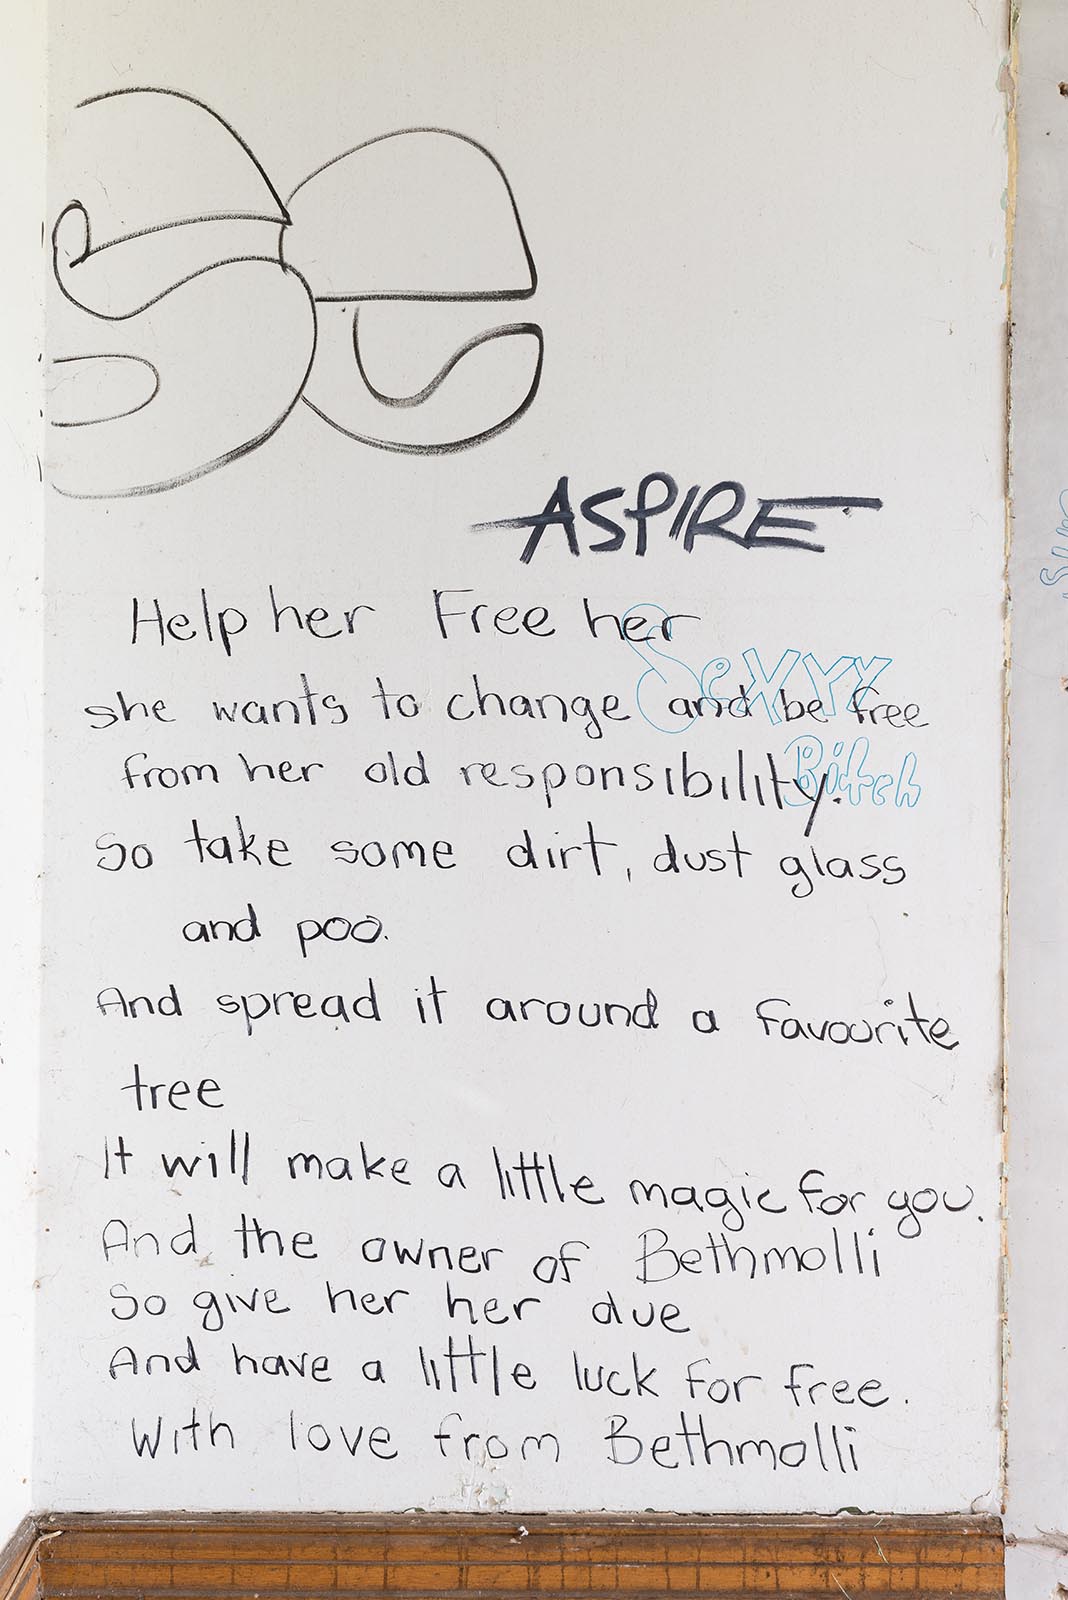 Se
ASPIRE
Help her Free her
Sexyy
she wants to change and be free
Bitch
from her old responsibility.
So take some dirt, dust glass
and poo.
And spread it around a favourite
tree
It will make a little magic for you.
And the owner of Bethmolli
So give her her due
And have a little luck for free.
With love from Bethmolli